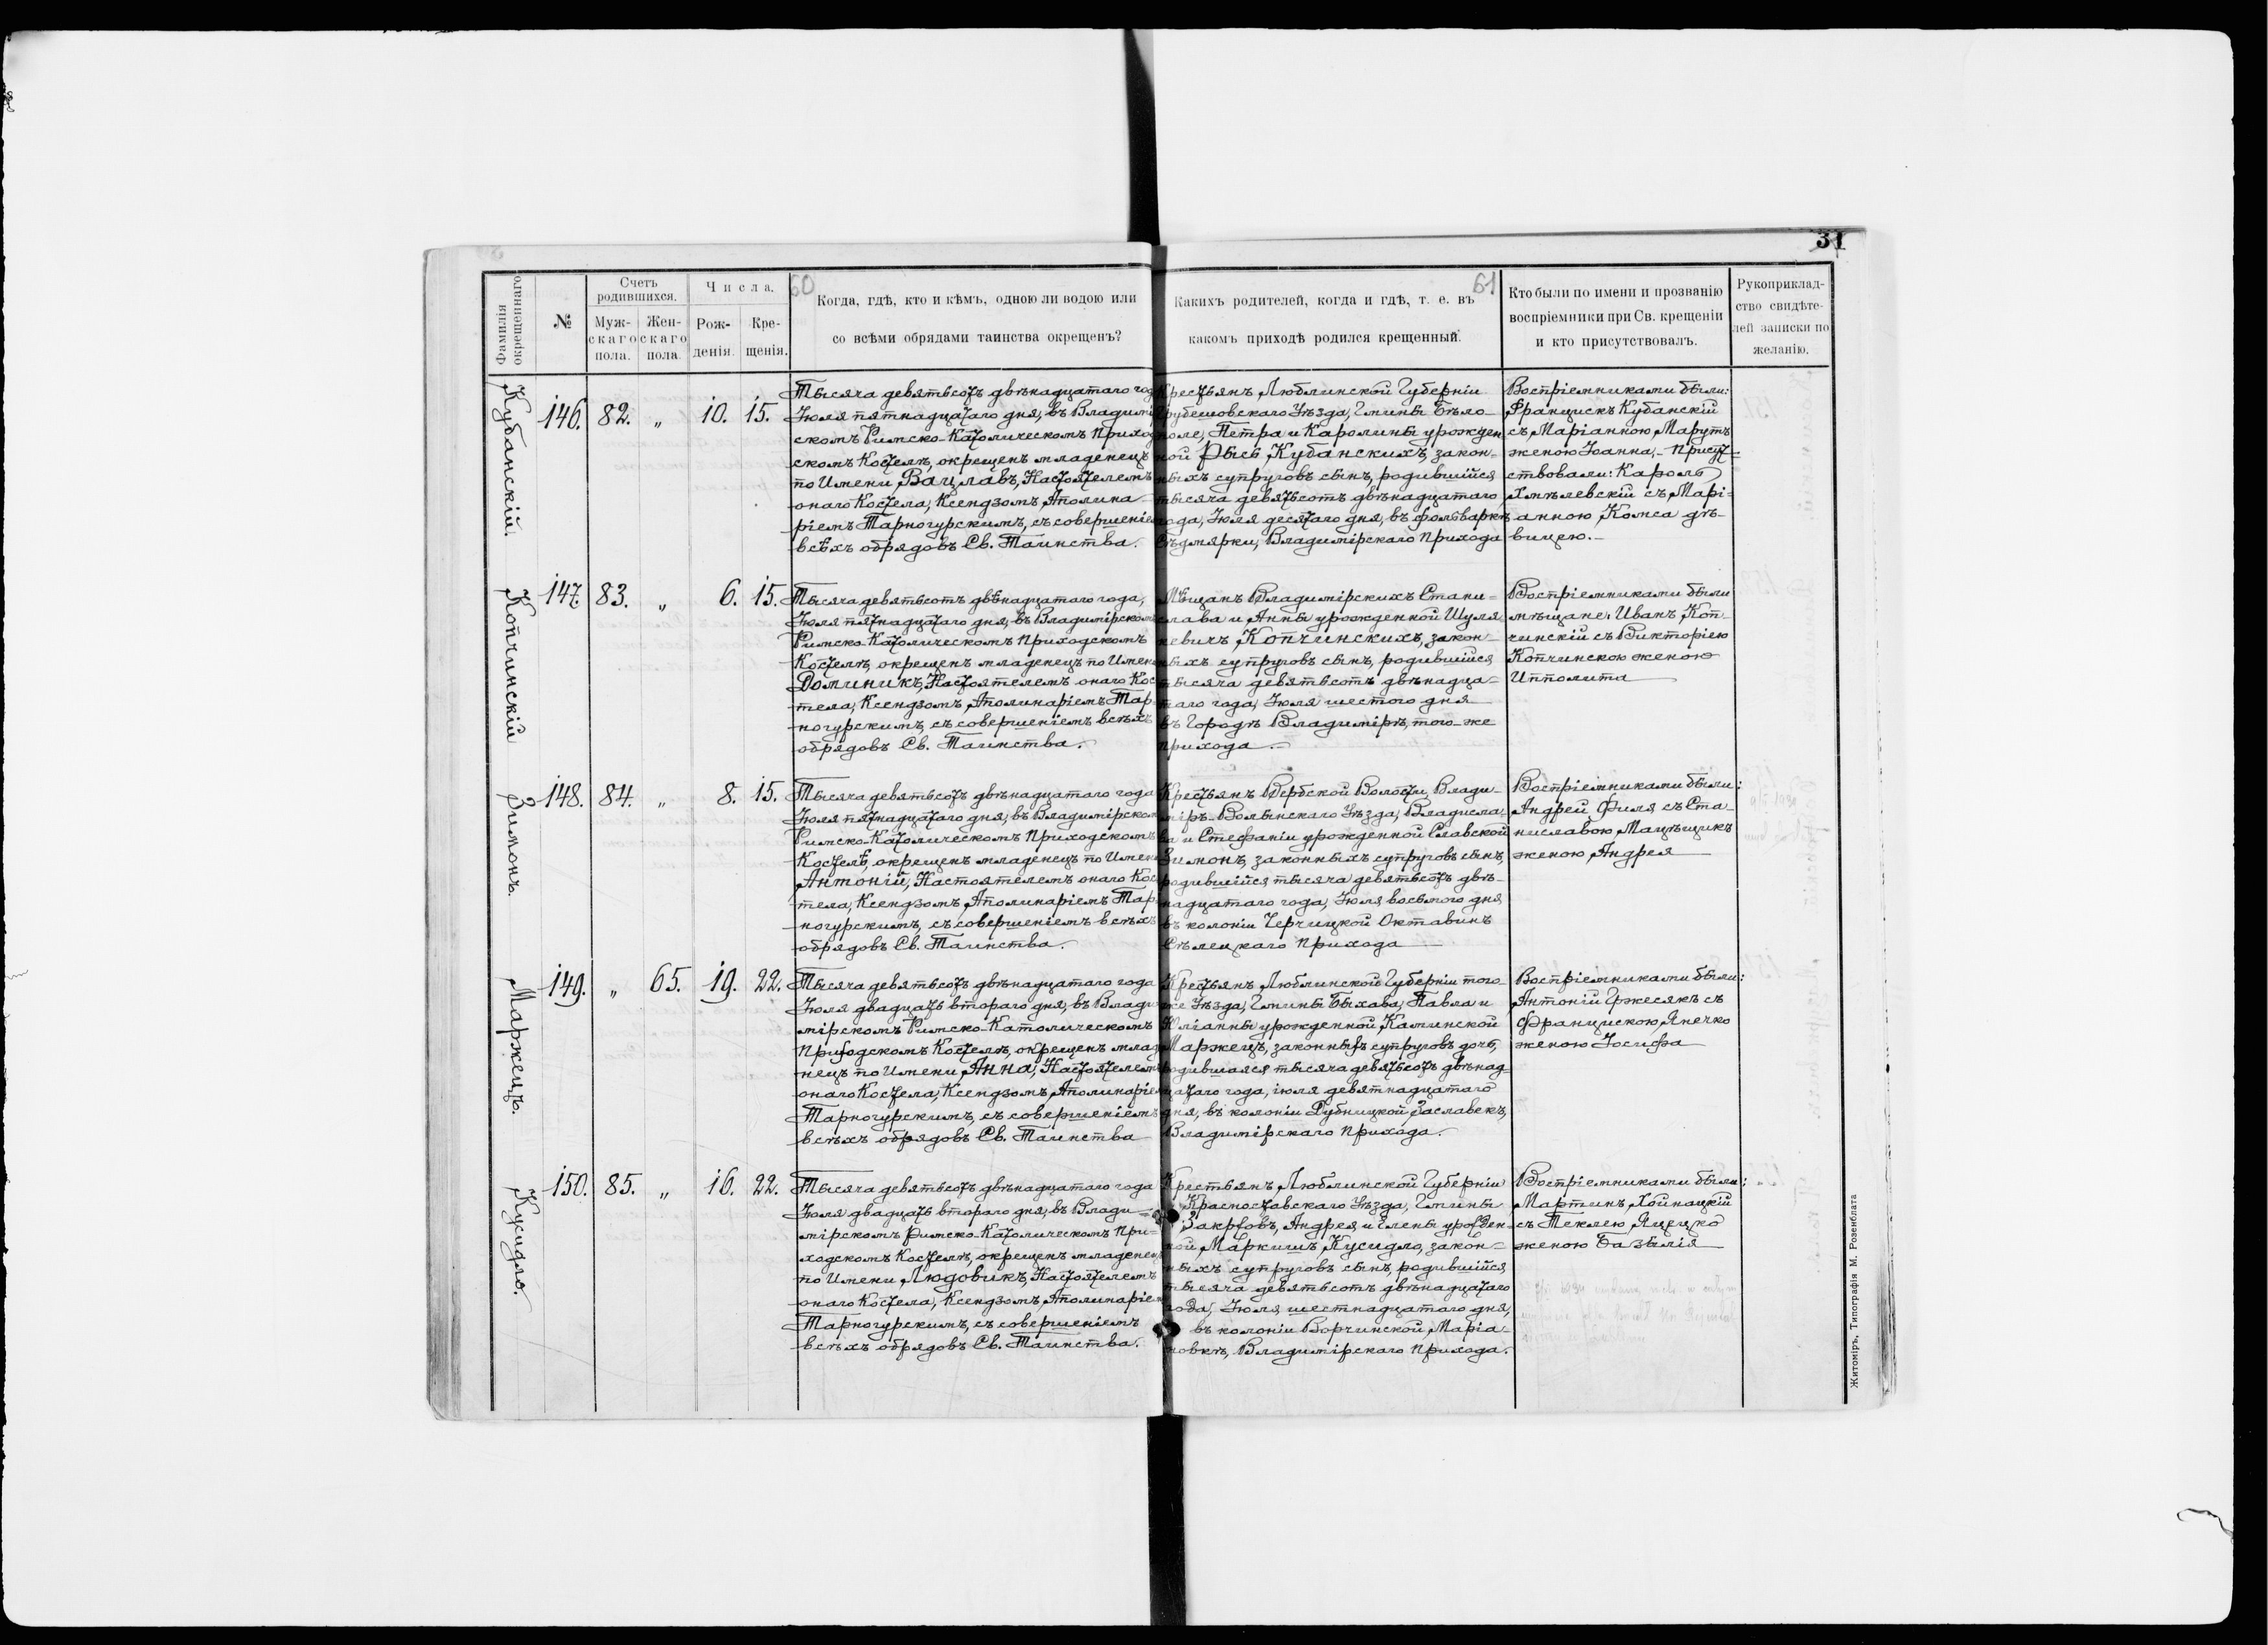 31
60
61
Фамилія окрещеннаго
№
Счетъ родившихся.
Мужскаго пола.
Женскаго пола.
Числа.
Рожденія.
Крещенія.
Когда, гдѣ, кто и кѣмъ, одною ли водою или
со всѣми обрядами таинства окрещенъ?
Какихъ родителей, когда и гдѣ, т. е. въ
какомъ приходѣ родился крещенный.
Кто были по имени и прозванію
воспріемники при Св. крещеніи
и кто присутствовалъ.
Рукоприклад-
ство свидѣте-
лей записки по
желанію.
Кубанскій.
146. 82. „ 10. 15.
Тысяча девятьсотъ двѣнадцатаго год
Іюля пятнадцатаго дня, въ Владимір
скомъ Римско-Католическомъ Приход
скомъ Костелѣ, окрещенъ младенецъ
по Имени Вацлавъ, Настоятелемъ
онаго Костела, Ксендзомъ Аполина-
ріемъ Тарногурскимъ, съ совершеніем
всѣхъ обрядовъ Св. Таинства.
Крестьянъ Люблинской Губерніи
Грубешовскаго Уѣзда, Гмины Бѣло-
поле, Петра и Каролины урожден
ной Рысь Кубанскихъ, закон-
ныхъ супруговъ сынъ, родившійся
тысяча девятьсотъ двѣнадцатаго
года, Іюля десятаго дня, въ фольваркѣ
Сѣдмярки, Владимірскаго Прихода
Воспріемниками были:
Францискъ Кубанскій
съ Маріанною Марутъ
женою Іоанна,- Присут=
ствовали: Кароль
Хмѣлевскій съ Марі=
анною Комса дѣ-
вицею.-
Копчинскій
147. 83. „ 6. 15.
Тысяча девятьсотъ двѣнадцатаго года,
Іюля пятнадцатаго дня, въ Владимірском
Римско-Католическомъ Приходскомъ
Костелѣ, окрещенъ младенецъ по Имен
Доминикъ, Настоятелемъ онаго Кос
тела, Ксендзомъ Аполинаріемъ Тар
ногурскимъ, съ совершеніемъ всѣхъ
обрядовъ Св. Таинства.
Мѣщанъ Владимірскихъ Стани=
слава и Анны урожденной Шуля
кевичъ Копчинскихъ, закон-
ныхъ супруговъ сынъ, родившійся
тысяча девятьсотъ двѣнадца=
таго года, Іюля шестого дня
въ Городѣ Владимірѣ, того-же
прихода.-
Воспріемниками были
мѣщане: Иванъ Коп-
чинскій съ Викторіею
Копчинскою женою
Ипполита
Зимонъ.
148. 84. „ 8. 15.
Тысяча девятьсотъ двѣнадцатаго года
Іюля пятнадцатаго дня, въ Владимірском
Римско-Католическомъ Приходскомъ
Костелѣ, окрещенъ младенецъ по Имен
Антоній, Настоятелемъ онаго Кос
тела, Ксендзомъ Аполинаріемъ Тар
ногурскимъ, съ совершеніемъ всѣхъ
обрядовъ Св. Таинства.
Крестьянъ Вербской Волости, Влади-
міръ-Волынскаго Уѣзда, Владисла-
ва и Стефаніи урожденной Славской
Зимонъ, законныхъ супруговъ сынъ,
родившійся тысяча девятьсотъ двѣ-
надцатаго года, Іюля восьмого дня
въ колоніи Черчицкой Октавинъ
Сѣлецкаго прихода
Воспріемниками были:
Андрей Филя съ Ста-
ниславою Мацѣщикъ
женою Андрея
Маржецъ.
149. „ 65. 19. 22.
Тысяча девятьсотъ двѣнадцатаго года
Іюля двадцать второго дня, въ Влади
мірскомъ Римско-Католическомъ
Приходскомъ Костелѣ, окрещенъ млад
нецъ по Имени Анна, Настоятелем
онаго Костела, Ксендзомъ Аполинаріем
Тарногурскимъ, съ совершеніемъ
всѣхъ обрядовъ Св. Таинства
Крестьянъ Люблинской Губерніи того-
же Уѣзда, Гмины Быхава, Павла и
Юліанны урожденной Каминской
Маржецъ, законныхъ супруговъ дочь,
родившаяся тысяча девятьсотъ двѣнад=
цатаго года, іюля девятнадцатаго
дня, въ колоніи Дубницкой Заславекъ,
Владимірскаго прихода.
Воспріемниками были:
Антоній Гржесякъ съ
Францискою Янечко
женою Іосифа
Кусидло.
150. 85. „ 16. 22.
Тысяча девятьсотъ двѣнадцатаго года
Іюля двадцать второго дня, въ Влади=
мірскомъ Римско-Католическомъ При=
ходскомъ Костелѣ, окрещенъ младенец
по Имени Людовикъ, Настоятелемъ
онаго Костела, Ксендзомъ Аполинаріем
Тарногурскимъ, съ совершеніемъ
всѣхъ обрядовъ Св. Таинства.
Крестьянъ Люблинской Губерніи
Красноставскаго Уѣзда, Гмины
Закржовъ, Андрея и Елены урожден-
ной Маркишъ Кусидло, закон=
ныхъ супруговъ сынъ, родившійся
тысяча девятьсотъ двѣнадцатаго
года, Іюля шестнадцатаго дня,
въ колоніи Ворчинской Маріа-
новкѣ, Владимірскаго прихода.
Воспріемниками были:
Мартинъ Хойнацкій
съ Теклею Яцецко
женою Базылія
Житоміръ, Типографія М. Розенблата